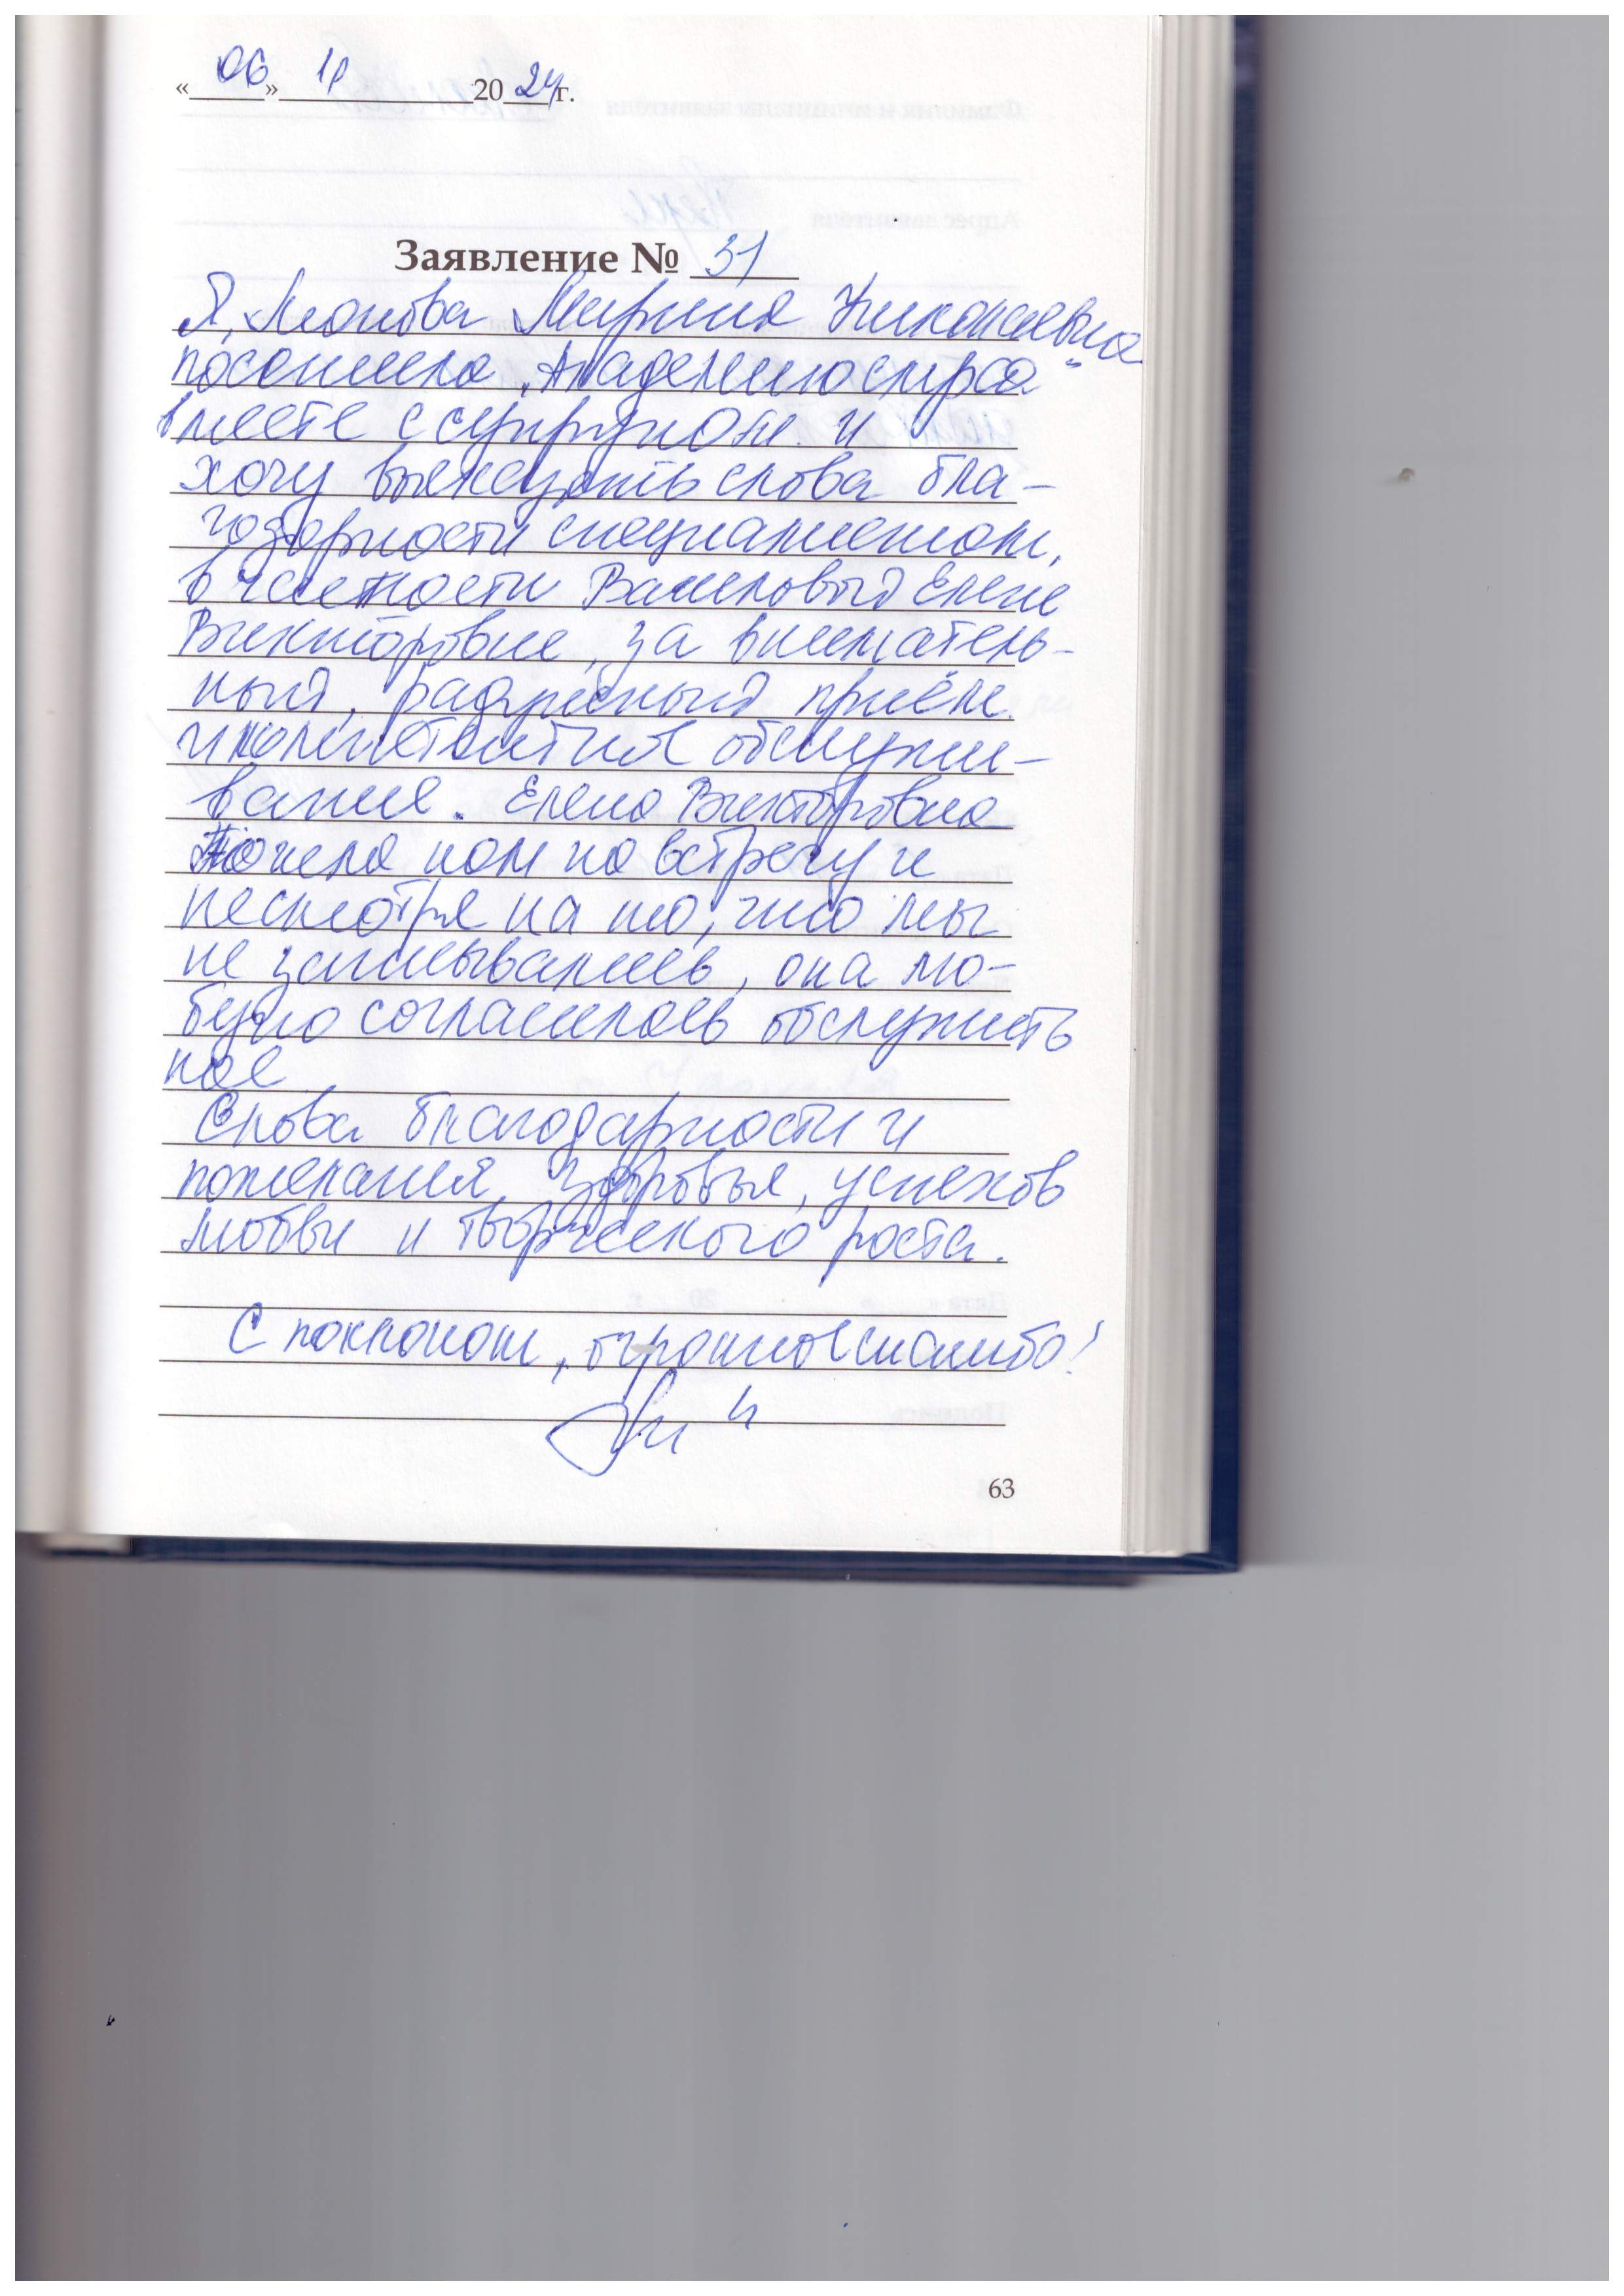 «06» 11 2024 г.
Заявление № 31
Я, Николаевна
посетила „Академию слуха"
вместе с супругом и
хочу высказать слова бла-
годарности специалистам,
в частности Елене
Викторовне, за вниматель-
ный, радушный приём
и компетентное обслужи-
вание. Елена Викторовна
пошла нам на встречу и
несмотря на то, что мы
не записывались, она лю-
безно согласилась обслужить
нас
Слова благодарности и
пожелания здоровья, успехов
любви и творческого роста.
С поклоном, огромное спасибо!
63